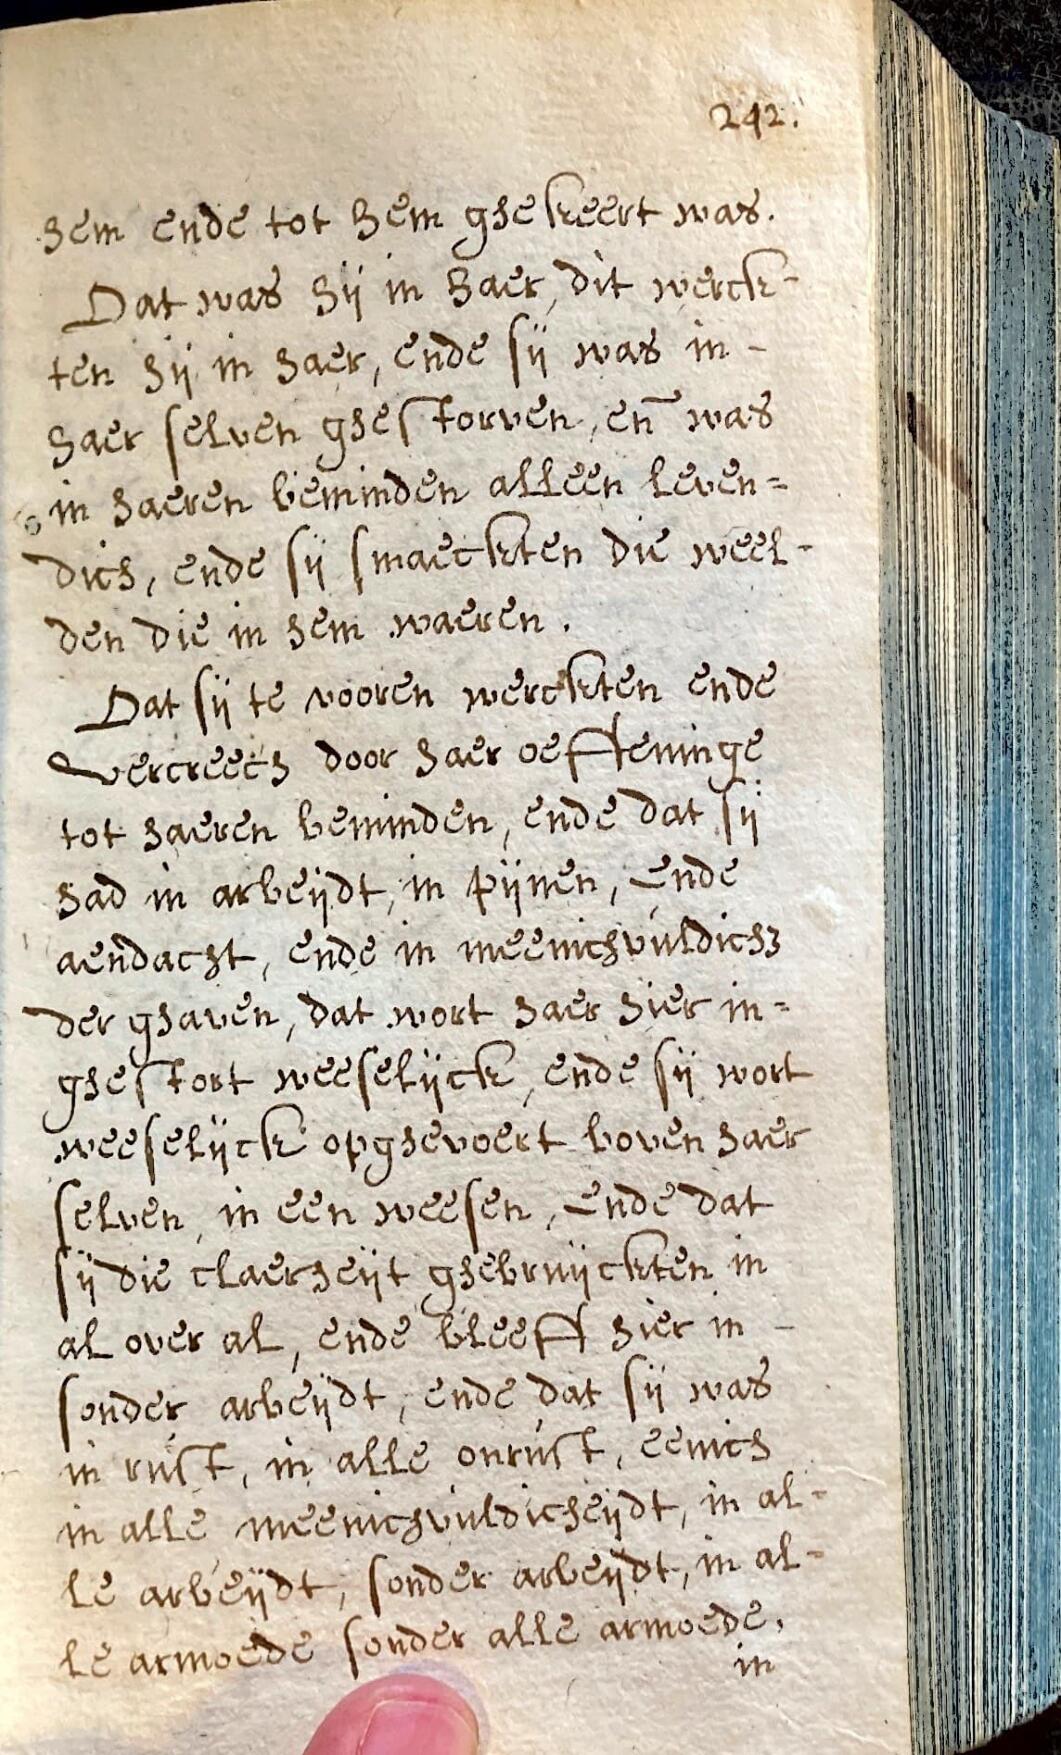 242.
hem ende tot hem ghekeert was.
Dat was hij in haer, dit werck-
ten hij in haer, ende sij was in -
haer selven ghestorven, en̄ was
in haeren beminden alleen leven=
dich, ende sij smaeckten die weel-
den die in hem waeren.
Dat sij te vooren werckten ende
vercreech door haer oeffeninge
tot haeren beminden, ende dat sij
had in arbeijdt, in pijnen, ende
aendacht, ende in meenichvuldich
der ghaven, dat wort haer hier in=
ghestort weeselijck, ende sij wort
weeselijck opghevoert boven haer
selven, in een weesen, ende dat
sij die claerheijt ghebruijckten in
al over al, ende bleeff hier in -
sonder arbeijdt, ende dat sij was
in rust, in alle onrust, eenich
in alle meenichvuldicheijdt, in al=
le arbeijdt, sonder arbeijdt, in al=
le armoede sonder alle armoede,
in